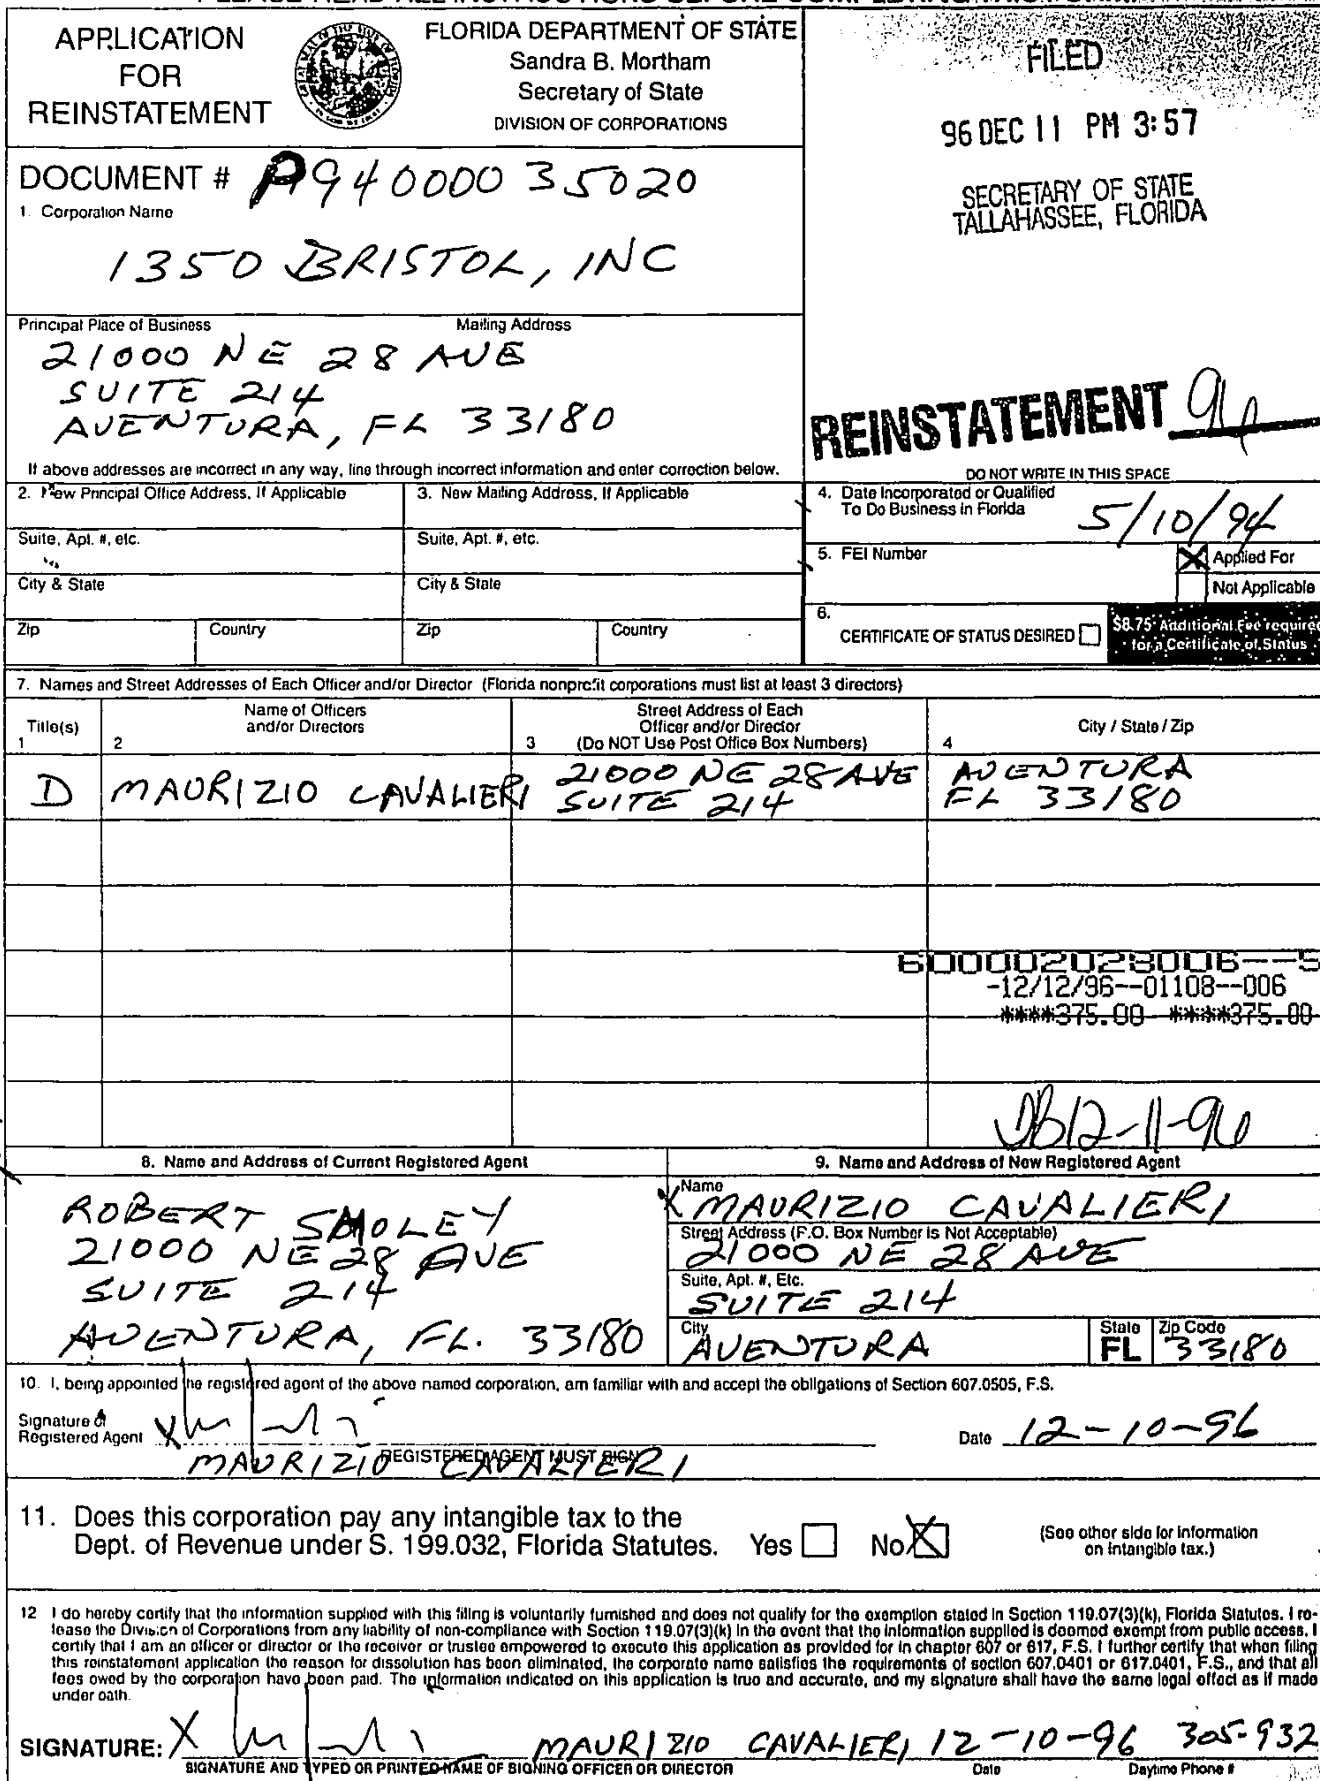 APPLICATION
FOR
REINSTATEMENT
FLORIDA DEPARTMENT OF STATE
Sandra B. Mortham
Secretary of State
DIVISION OF CORPORATIONS
FILED
96 DEC 11 PM 3:57
SECRETARY OF STATE
TALLAHASSEE, FLORIDA
DOCUMENT # P94000035020
1. Corporation Name
1350 BRISTOL, INC
Principal Place of Business Mailing Address
21000 NE 28 AVE
SUITE 214
AVENTURA, FL 33180
If above addresses are incorrect in any way, line through incorrect information and enter correction below.
REINSTATEMENT 96
DO NOT WRITE IN THIS SPACE
2. New Principal Office Address, If Applicable
3. New Mailing Address, If Applicable
4. Date Incorporated or Qualified
To Do Business in Florida
5/10/94
Suite, Apt. #, etc.
Suite, Apt. #, etc.
5. FEI Number
Applied For
Not Applicable
City & State
City & State
6.
CERTIFICATE OF STATUS DESIRED
$8.75 Additional Fee required
for a Certificate of Status
Zip Country
Zip Country
7. Names and Street Addresses of Each Officer and/or Director (Florida nonprofit corporations must list at least 3 directors)
Title(s)
1
Name of Officers
and/or Directors
2
Street Address of Each
Officer and/or Director
3 (Do NOT Use Post Office Box Numbers)
City / State / Zip
4
D MAURIZIO CAVALIERI
21000 NE 28 AVE
SUITE 214
AVENTURA
FL 33180
600002028006--5
-12/12/96--01108--006
****375.00 ****375.00
12-11-96
8. Name and Address of Current Registered Agent
ROBERT SMOLEY
21000 NE 28 AVE
SUITE 214
AVENTURA, FL. 33180
9. Name and Address of New Registered Agent
Name
X MAURIZIO CAVALIERI
Street Address (P.O. Box Number is Not Acceptable)
21000 NE 28 AVE
Suite, Apt. #, Etc.
SUITE 214
City
AVENTURA
State
FL
Zip Code
33180
10. I, being appointed the registered agent of the above named corporation, am familiar with and accept the obligations of Section 607.0505, F.S.
Signature of
Registered Agent X
Date 12-10-96
REGISTERED AGENT MUST SIGN
MAURIZIO CAVALIERI
11. Does this corporation pay any intangible tax to the
Dept. of Revenue under S. 199.032, Florida Statutes. Yes No X
(See other side for information
on intangible tax.)
12 I do hereby certify that the information supplied with this filing is voluntarily furnished and does not qualify for the exemption stated in Section 119.07(3)(k), Florida Statutes. I re-
lease the Division of Corporations from any liability of non-compliance with Section 119.07(3)(k) in the event that the information supplied is deemed exempt from public access. I
certify that I am an officer or director or the receiver or trustee empowered to execute this application as provided for in chapter 607 or 617, F.S. I further certify that when filing
this reinstatement application the reason for dissolution has been eliminated, the corporate name satisfies the requirements of section 607.0401 or 617.0401, F.S., and that all
fees owed by the corporation have been paid. The information indicated on this application is true and accurate, and my signature shall have the same legal effect as if made
under oath.
SIGNATURE: X MAURIZIO CAVALIERI 12-10-96 305-932
SIGNATURE AND TYPED OR PRINTED NAME OF SIGNING OFFICER OR DIRECTOR Date Daytime Phone #